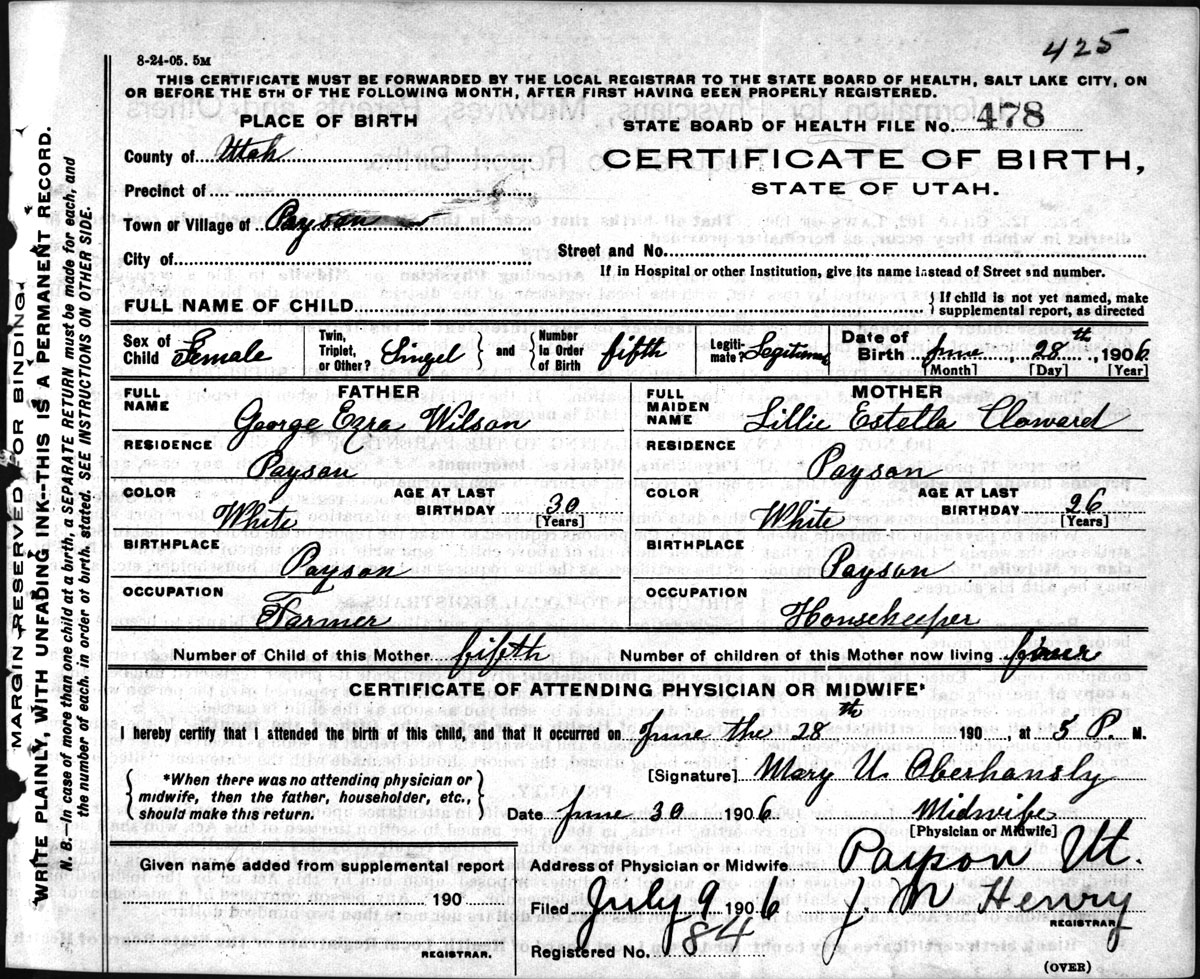 425
8-24-05. 5M
THIS CERTIFICATE MUST BE FORWARDED BY THE LOCAL REGISTRAR TO THE STATE BOARD OF HEALTH, SALT LAKE CITY, ON
OR BEFORE THE 5TH OF THE FOLLOWING MONTH, AFTER FIRST HAVING BEEN PROPERLY REGISTERED.
PLACE OF BIRTH
STATE BOARD OF HEALTH FILE No. 478
County of Utah
CERTIFICATE OF BIRTH,
STATE OF UTAH.
Precinct of
Town or Village of Payson
City of
Street and No.
If in Hospital or other Institution, give its name instead of Street and number.
FULL NAME OF CHILD
{ If child is not yet named, make
supplemental report, as directed
Sex of Child Female
Twin, Triplet, or Other? Singel } and { Number in Order of Birth fifth
Legitimate? Legitimate
Date of Birth June, 28th, 1906
[Month] [Day] [Year]
FATHER
FULL NAME
George Ezra Wilson
RESIDENCE
Payson
COLOR
White
AGE AT LAST BIRTHDAY 30
[Years]
BIRTHPLACE
Payson
OCCUPATION
Farmer
MOTHER
FULL MAIDEN NAME
Lillie Estella Cloward
RESIDENCE
Payson
COLOR
White
AGE AT LAST BIRTHDAY 26
[Years]
BIRTHPLACE
Payson
OCCUPATION
Housekeeper
Number of Child of this Mother fifth
Number of children of this Mother now living
CERTIFICATE OF ATTENDING PHYSICIAN OR MIDWIFE*
I hereby certify that I attended the birth of this child, and that it occurred on June the 28th 190 , at 5 P. M.
{ *When there was no attending physician or
midwife, then the father, householder, etc.,
should make this return. }
[Signature] Mary U Oberhansly
Date June 30 1906
Midwife
[Physician or Midwife]
Given name added from supplemental report
190
REGISTRAR.
Address of Physician or Midwife Payson Ut.
Filed July 9 1906 J. M Henry
REGISTRAR
Registered No. 84
(OVER)
MARGIN RESERVED FOR BINDING.
WRITE PLAINLY, WITH UNFADING INK--THIS IS A PERMANENT RECORD.
N. B.—In case of more than one child at a birth, a SEPARATE RETURN must be made for each, and
the number of each, in order of birth, stated. SEE INSTRUCTIONS ON OTHER SIDE.